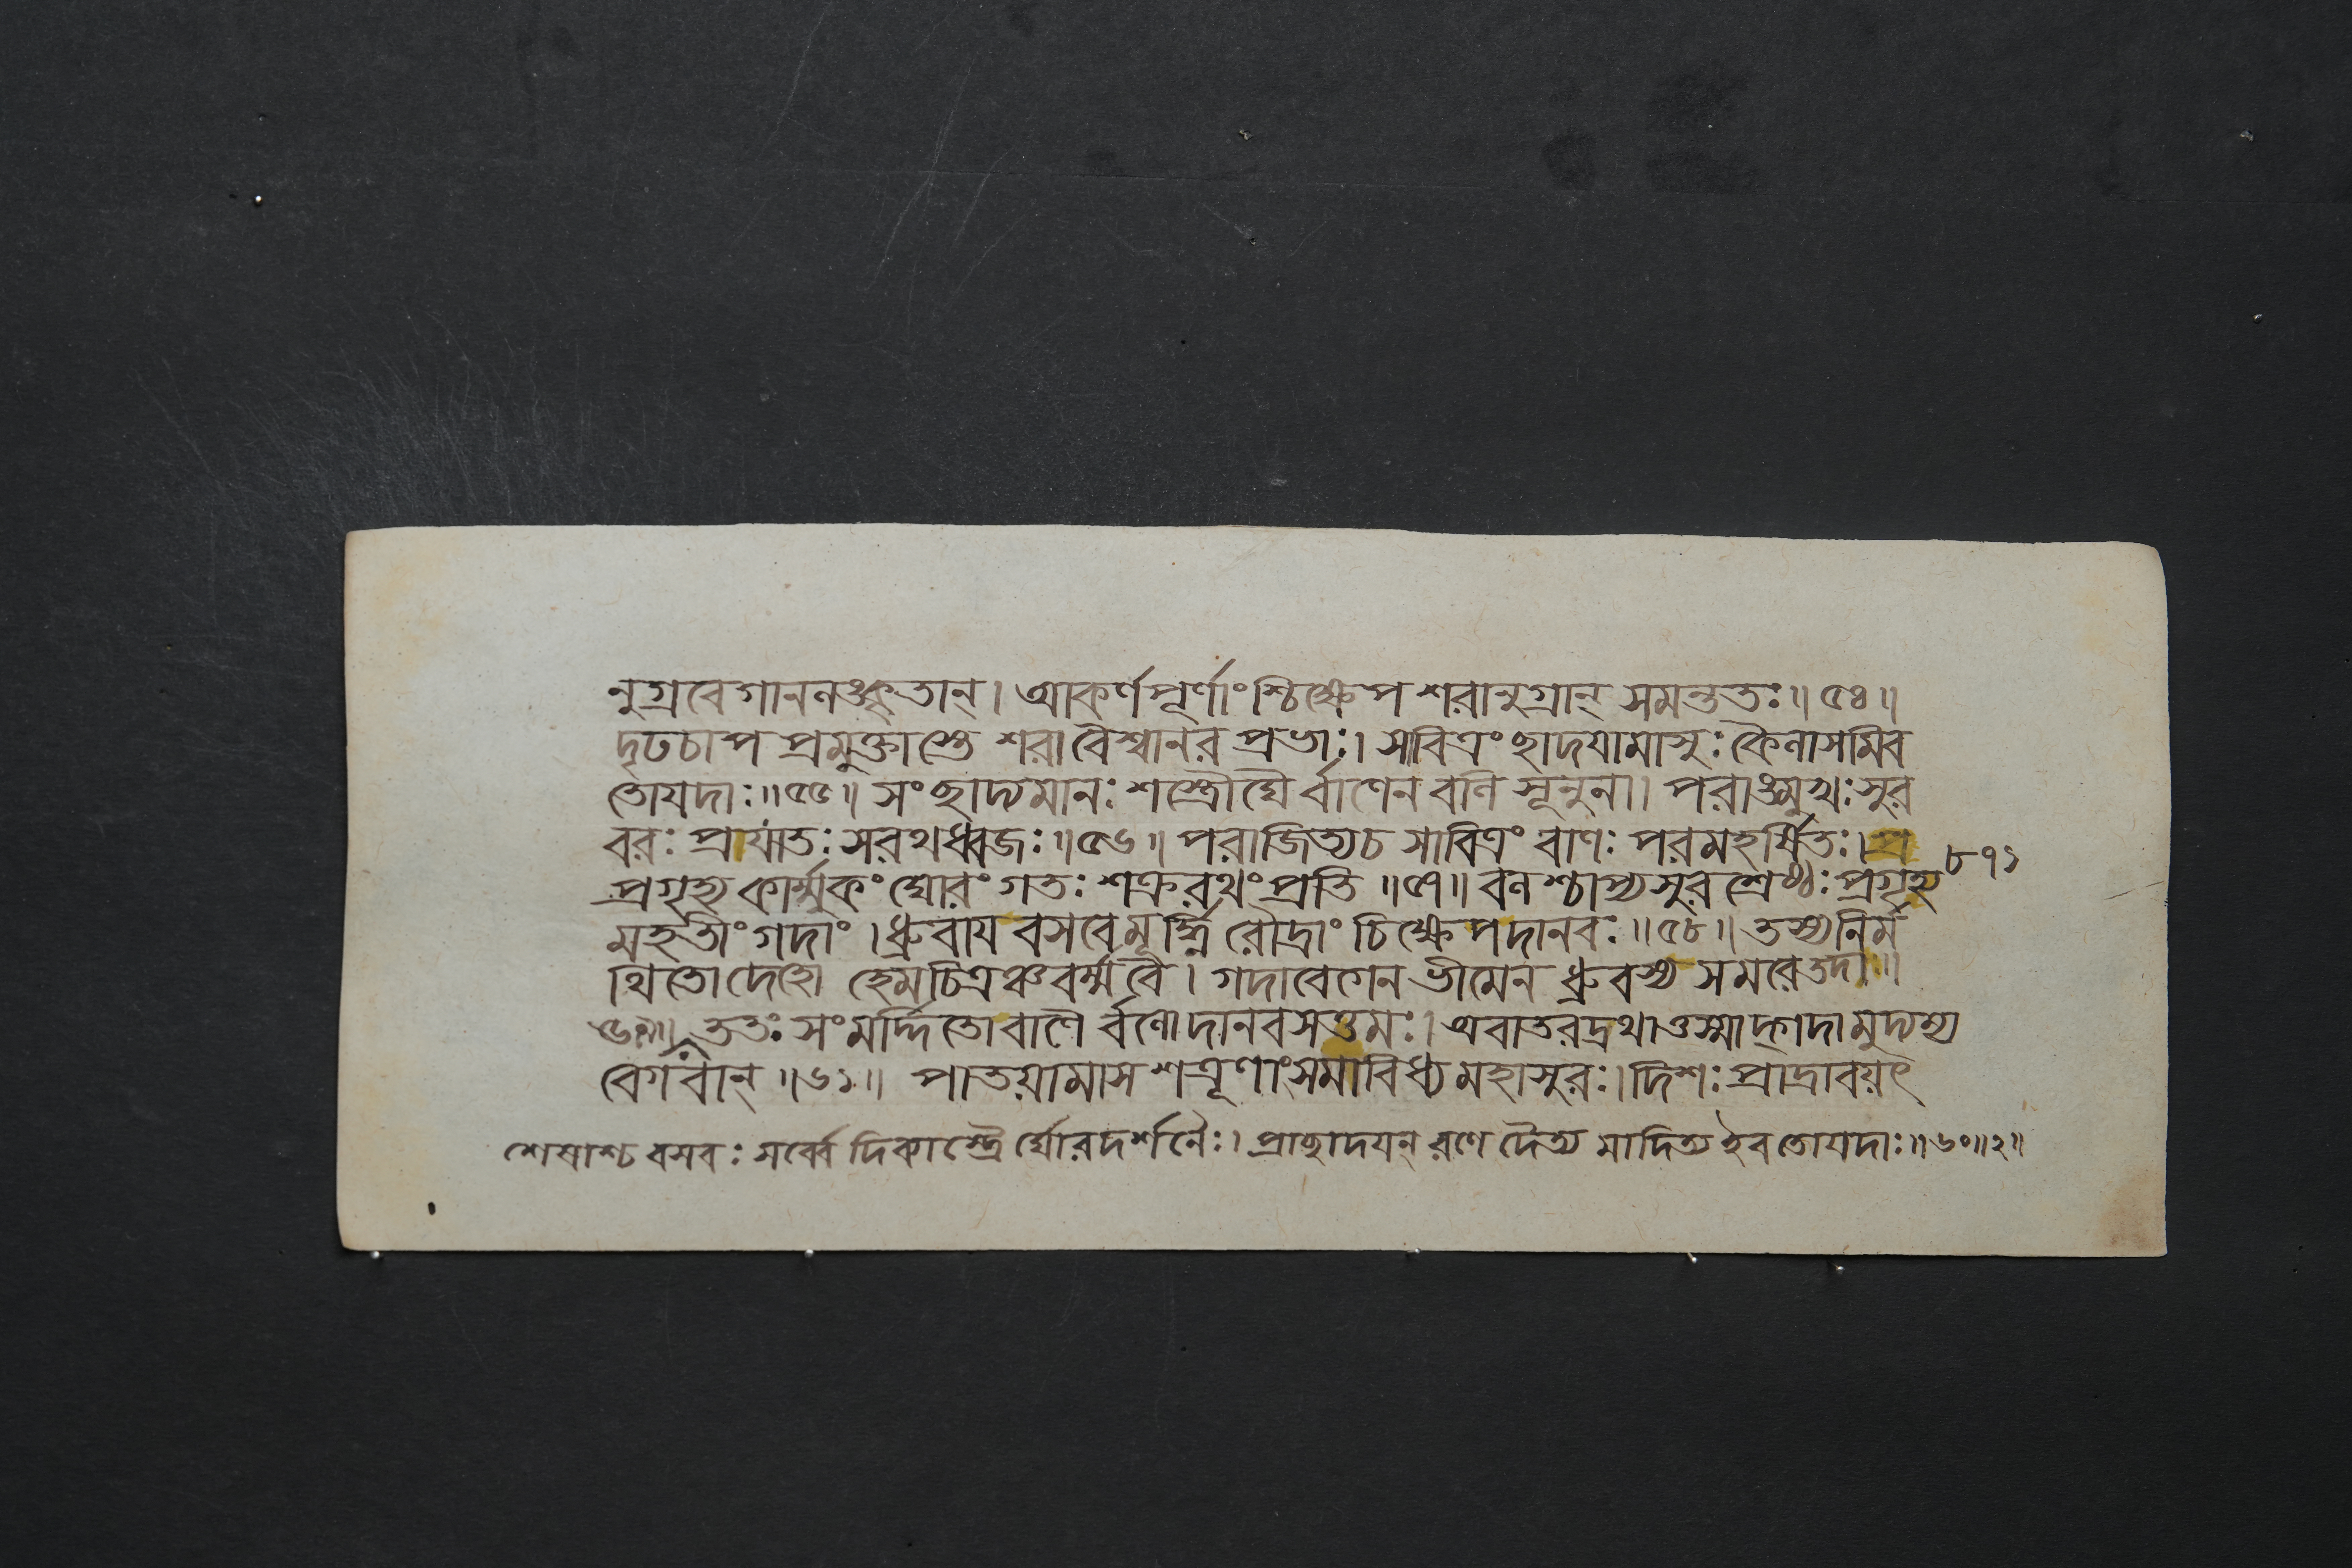 নুগ্রবেগাননঙ্কৃতান্। আকর্ণপূর্ণাংশ্চিক্ষেপ শরানুগ্রান্ সমন্ততঃ॥৫৪॥
দৃঢচাপ প্রমুক্তাস্তে শরাবৈশ্বানর প্রভাঃ। সাবিত্রং ছাদযামাসুঃ কৈলাসমিব
তোযদাঃ॥৫৫॥ সংছাদ্যমানঃ শস্ত্রৌঘৈ র্বাণেন বলি সূনুনা। পরাঙ্মুখঃ সুর
বরঃ প্রাযাতঃ সরথধ্বজঃ॥৫৬॥ পরাজিত্যচ সাবিত্রং বাণঃ পরমহর্ষিতঃ। প্র
প্রগৃহ্য কার্ম্মুকং ঘোরং গতঃ শক্ররথং প্রতি॥৫৭॥ বলশ্চাপ্যসুর শ্রেষ্ঠঃ প্রগৃহ্য ৮৭১
মহতীং গদাং। ধ্রুবায বসবে মূর্দ্ধ্নি রৌদ্রাং চিক্ষেপ দানবঃ॥৫৮॥ তস্যনির্ম
থিতো দেহো হেমচিত্রঞ্চ বর্ম্মবৈ। গদাবেগেন ভীমেন ধ্রুবস্য সমরে তদা॥
৫৯॥ ততঃ সংমর্দ্দিতো বাণৈ র্বলো দানবসত্তমঃ। অবাতরদ্রথাত্তস্মাদ্গদামুদ্যম্য
বেগবান্॥৬১॥ পাতয়ামাস শত্রূণাং সমাবিধ্য মহাসুরঃ। দিশঃ প্রাদ্রাবয়ৎ
শেষাশ্চ বসবঃ সর্ব্বে দিব্যাস্ত্রৈ র্ঘোরদর্শনৈঃ। প্রাছাদযন্ রণে দৈত্য মাদিত্য ইব তোযদাঃ॥৬০॥২॥